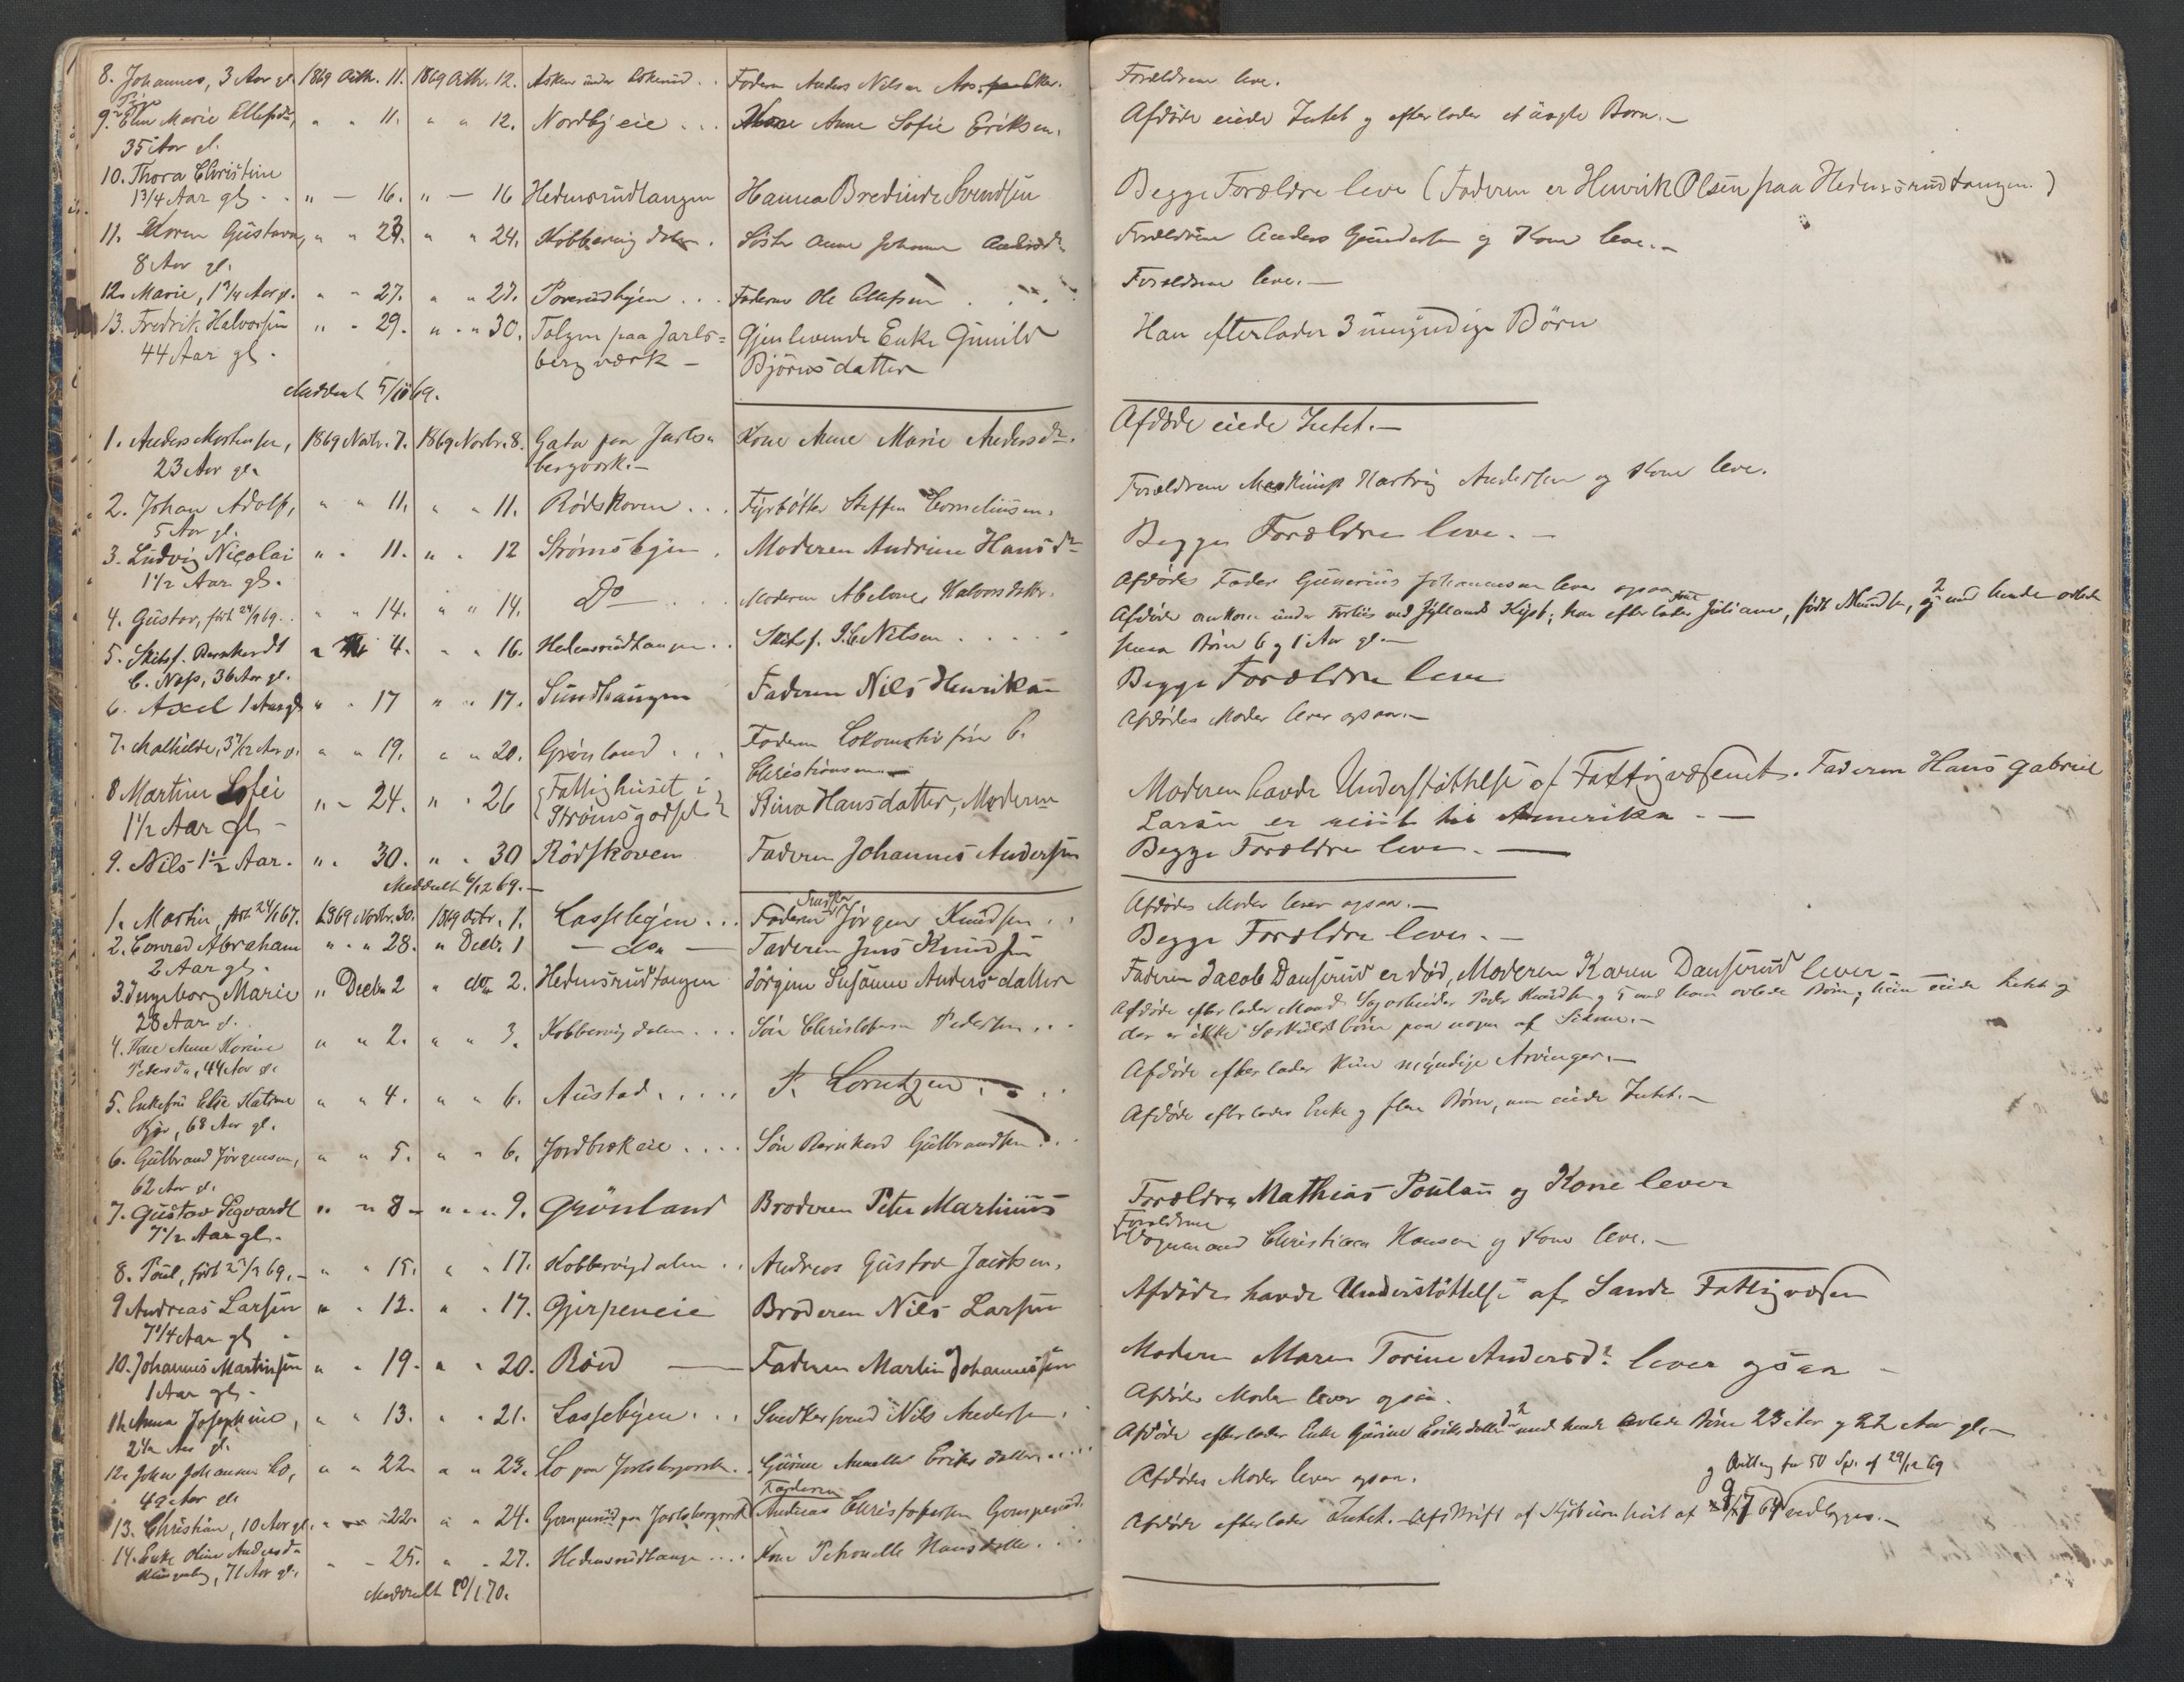 8. Johannes, 3 Aar gl. 1869 Octbr. 11. 1869 Octbr. 12. Asken under Askerud . . Faderen Anders Nilsen Aas.
Forældrene leve.
Pige
9. Elen Marie Ellefsdr, " " 11. " " 12. Nordby eie . . . Kone Anne Sofie Eriksen.
35 Aar gl.
Afdøde eiede Intet og efterlader et uægte Barn.—
10. Thora Christine
1 3/4 Aar gl. . . " — 16. " — 16 Hedensrudtangen Hanna Bredine Svendsen
Begge Forældre leve (Faderen er Henrik Olsen paa Hedensrudtangen.)
11. Karen Gustava, " " 23. " " 24. Kobbervig dalen . Søster Anne Johanne Andersdr
8 Aar gl.
Forældrene Anders Gundersen og Kone leve.—
12. Marie, 1 3/4 Aar gl. " " 27. " " 27. Porerudbyen . . . Faderen Ole Olafsen . . .
Forældrene leve.—
13. Fredrik Halvorsen " " 29. " " 30. Tolgen paa Jarls=
44 Aar gl. berg værk — Gjenlevende Enke Gunild
Bjørnsdatter
Han efterlader 3 umyndige Børn
Meddeelt 5/11 69.
1. Anders Mortensen, 1869 Novbr. 7. 1869 Novbr. 8. Gata paa Jarls= Kone Anne Marie Andersdr.
23 Aar gl. bergværk.—
Afdøde eiede Intet.—
2. Johan Adolf, " " 11. " " 11. Rødskoven . . . Fyrbøtter Steffen Corneliussen.
5 Aar gl.
Forældrene Maskinist Hartvig Andersen og Kone leve.
3. Ludvig Nicolai " " 11. " " 12 Strømsbyen . Moderen Andrine Hansdr
1 1/2 Aar gl.
Begge Forældre leve. —
4. Gustav, født 24/9 69. . " " 14. " " 14. Do — . . . Moderen Abelone Halvorsdatter.
Afdødes Fader Gunerius Johannessen lever ogsaa
5. Skibsf. Bernhardt " " 4. " " 16. Hedensrudtangen . . Skibsf. J. C. Nilsen . . . . .
C. Næss, 36 Aar gl.
Afdøde omkom under Forliis ved Jyllands Kyst; han efterlader Juliane, født Knudsen, og 2 med hende avlede
Børn 6 og 1 Aar gl.—
6. Axel 1 Aar gl. " " 17 " " 17. Sundhaugen Faderen Nils Henriksen
Begge Forældre leve
7. Mathilde, 3 7/12 Aar gl. " " 19. " " 20. Grønland . . . Faderen Lokomotivfører C.
Christiansen
Afdødes Moder lever ogsaa.—
8 Martine Sofie
1 1/2 Aar gl. — " " 24. " " 26 Fattighuset i
Strømsgodset Stina Hansdatter, Moderen
Moderen havde Understøttelse af Fattigvæsenet. Faderen Hans Gabriel
Larsen er reist til Amerika. —
9. Nils 1 1/2 Aar. " " 30. " " 30 Rødskoven Faderen Johannes Andersen
Begge Forældre leve. —
Meddeelt 6/12 69.—
1. Martin, født 24/1 67. 1869 Novbr. 30. 1869 Decbr. 1. Lassebyen . . . Faderen Snedker Jørgen Knudsen . .
Afdødes Moder lever ogsaa.—
2. Conrad Abraham " " " 28. " Decbr. 1 — do. — Faderen Jens Knudsen
2 Aar gl.
Begge Forældre lever. —
3. Ingeborg Marie " Decbr. 2 " do. 2. Hedensrudtangen Jørgine Susanne Andersdatter
28 Aar gl.
Faderen Jacob Dansrud er død, Moderen Karen Dansrud lever —
4. Kone Anne Karine " " 2. " " 3. Kobbervig dalen . . . Søn Christopher Pedersen . . .
Pedersdr., 44 Aar gl.
Afdøde efterlader Mand Sagarbeider Peder Knudsen og 5 med ham avlede Børn; hun eiede Intet og
der er ikke Særkuldsbørn paa nogen af Siderne.—
5. Enkefru Else Katrine " " 4. " " 6. Austad . . . . . P. Lorentzen . . .
Kjær, 68 Aar gl.
Afdøde efterlader kun myndige Arvinger.—
6. Gulbrand Jørgensen, " " 5. " " 6. Jordbrek eie . . . . Søn Bernhard Gulbrandsen . . .
62 Aar gl.
Afdøde efterlader Enke og flere Børn, men eiede Intet.—
7. Gustav Sigvardt " " 8 — " " " 9. Grønland Broderen Peter Martinius
7 1/2 Aar gl.
Forældre Mathias Poulsen og Kone lever
8. Paul, født 27/9 69.— " " 15. " " 17. Kobbervigdalen . . Andreas Gustav Jacobsen.
Forældrene
Vognmand Christian Hansen og Kone leve.—
9 Andreas Larsen " " 12. " " 17. Gjerpeneie Broderen Nils Larsen
71/4 Aar gl.
Afdøde havde Understøttelse af Sande Fattigvæsen
10. Johannes Martinsen " " 19. " " 20. Røed — Faderen Martin Johannessen
1 Aar gl.
Moderen Maren Torine Andersdr. lever ogsaa —
11. Anna Josephine, " " 13. " " 21. Lassebyen . . . Snedkersvend Nils Andersen .
2 1/2 Aar gl.
Afdødes Moder lever ogsaa.
12. Johan Johansen Lo, " " 22. " " 23. Lo paa Jarlsbergværk . . Gurine Annette Eriksdatter . . . .
49 Aar gl.
Afdøde efterlader Enke Gurine Eriksdatter og 2 med hende avlede Børn 23 Aar og 22 Aar gl.—
13. Christian, 10 Aar gl. " " 22. " " 24. Gomperud paa Jarlsbergværk Faderen Andreas Christophersen Gomperud.
Afdødes Moder lever ogsaa.
14. Enke Oline Andersdr " " 25. " " 27. Hedensrudtangen . . . . Kone Petronelle Hansdatter . . .
Klingenberg, 71 Aar gl.
og Qvittering for 50 Spd. af 29/12 69
Afdøde efterlader Intet.— Afskrift af Skjøde vedlægges.—
Meddeelt 10/1 70.